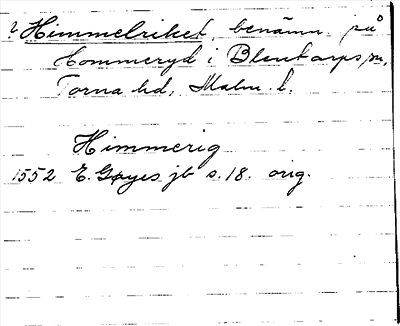 Himmelriket, benämn. på
Hommeryd i Blentarps sn,
Torna hd, Malm. l.
Himmerig
1552 E. Gøyes jb s. 18. orig.